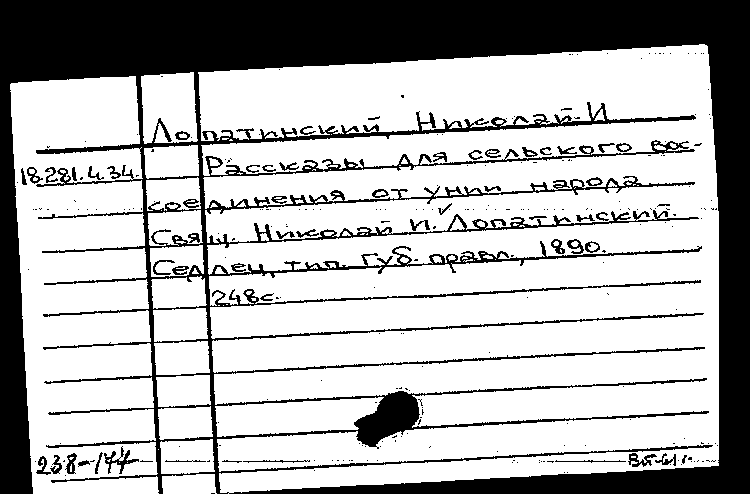 Лопатинский, Николай И
18.281.4.34. Рассказы для сельского вос-
соединения от унии народа.
Свящ. Николай И. Лопатинский.
Седлец, тип. Губ. правл., 1890.
248с.
238-177